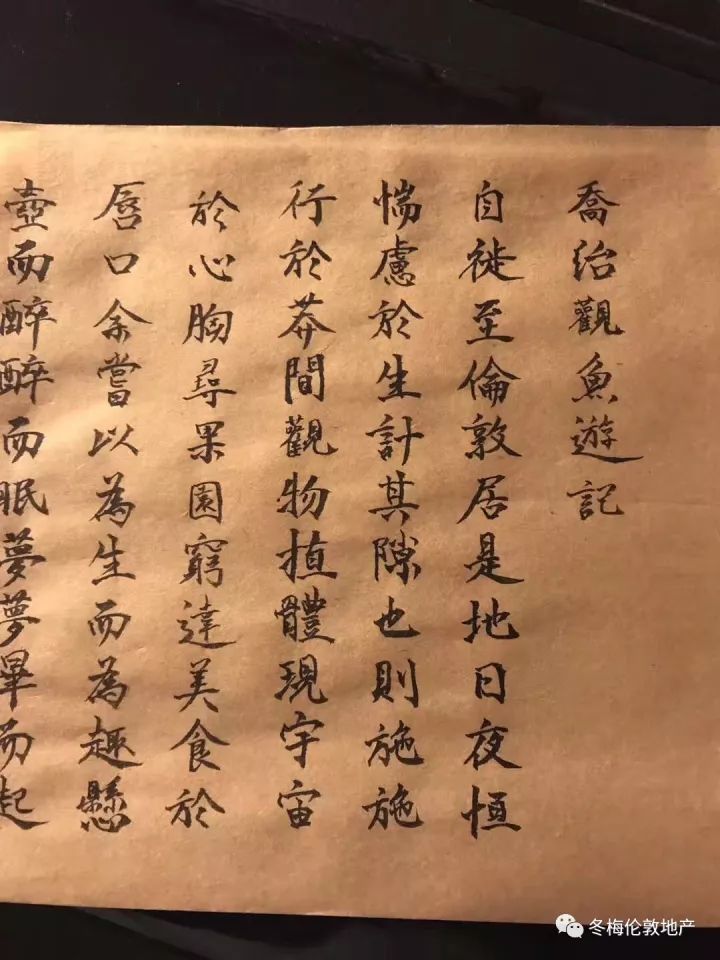 喬治觀魚遊記
自徙至倫敦居是地日夜恒
惴慮於生計其隙也則施施
行於莽間觀物植體現宇宙
於心胸尋果園窮達美食於
唇口余嘗以為生而為趣懸
壺而醉醉而眠夢夢畢而起
冬梅伦敦地产